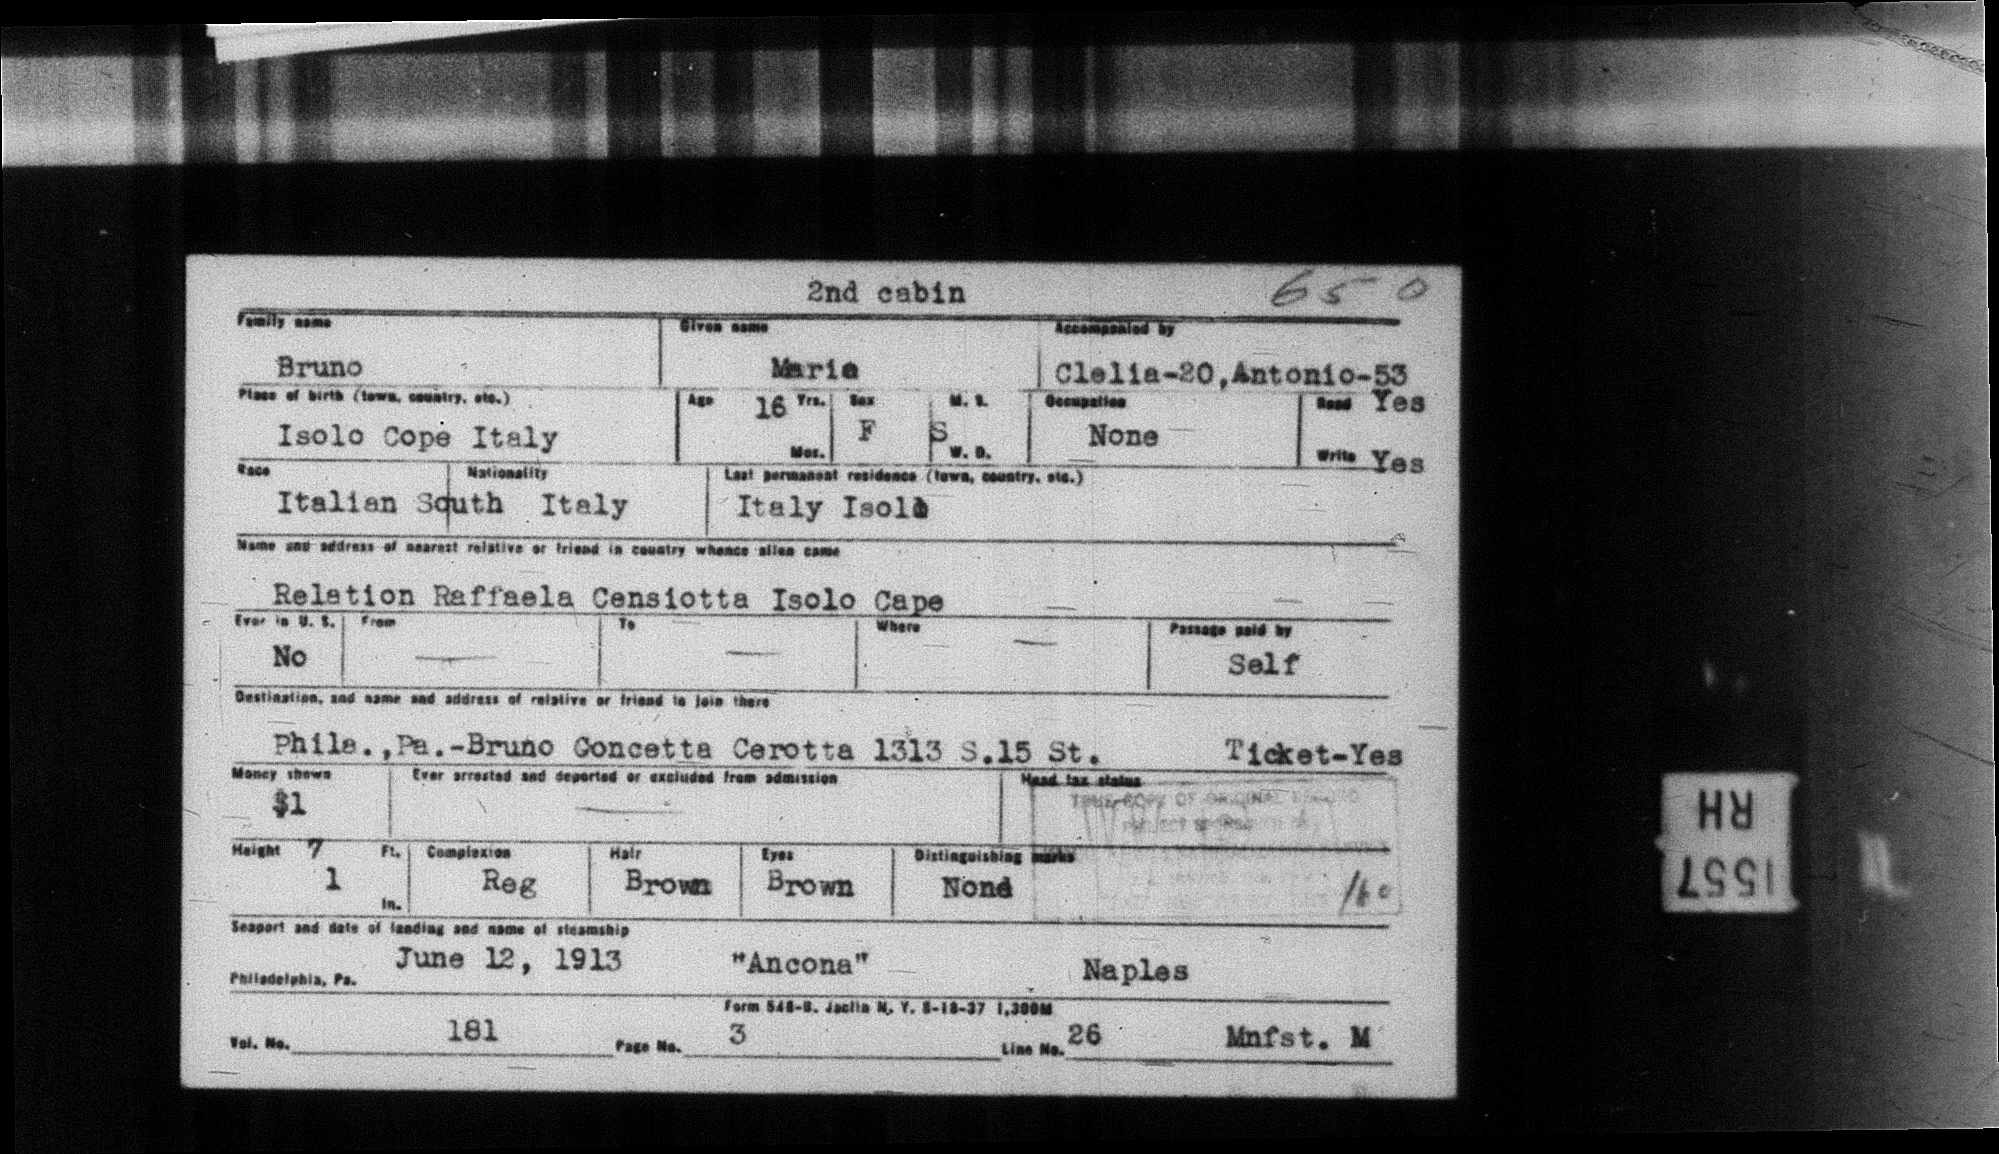 2nd cabin 650
Family name Given name Accompanied by
Bruno Maria Clelia-20,Antonio-53
Place of birth (town, country, etc.) Age 16 Yrs. Sex M. S. Occupation Read Yes
Isolo Cope Italy F S None
Mos. W. D. Write Yes
Race Nationality Last permanent residence (town, country, etc.)
Italian South Italy Italy Isolo
Name and address of nearest relative or friend in country whence alien came
Relation Raffaela Censiotta Isolo Cape
Ever in U. S. From To Where Passage paid by
No — — — Self
Destination, and name and address of relative or friend to join there
Phila.,Pa.-Bruno Concetta Cerotta 1313 S.15 St. Ticket-Yes
Money shown Ever arrested and deported or excluded from admission Head tax status
$1 —
TRUE COPY OF ORIGINAL RECORD
Height 7 Ft. Complexion Hair Eyes Distinguishing marks
1 In. Reg Brown Brown None 160
Seaport and date of landing and name of steamship
June 12, 1913 "Ancona" Naples
Philadelphia, Pa.
Form 548-B. Jaclin N. Y. 8-18-37 1,300M
Vol. No. 181 Page No. 3 Line No. 26 Mnfst. M
1557
RH